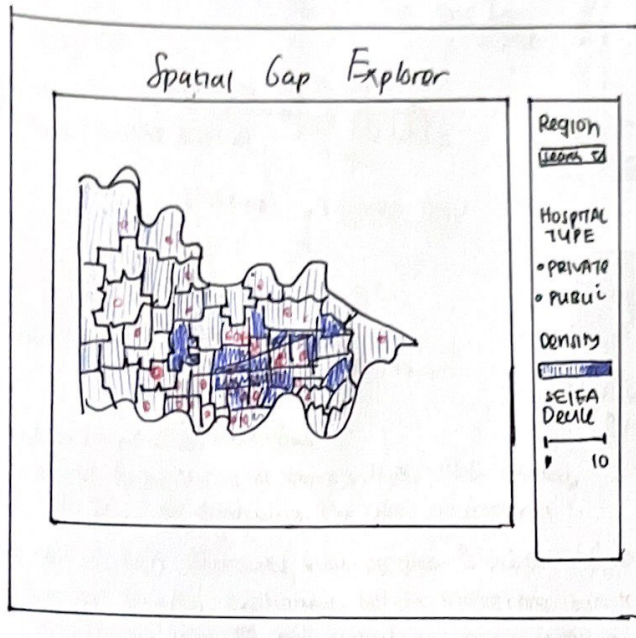 Spatial Gap Explorer
Region
Search
HOSPITAL
TYPE
PRIVATE
PUBLIC
Density
SEIFA
Decile
10